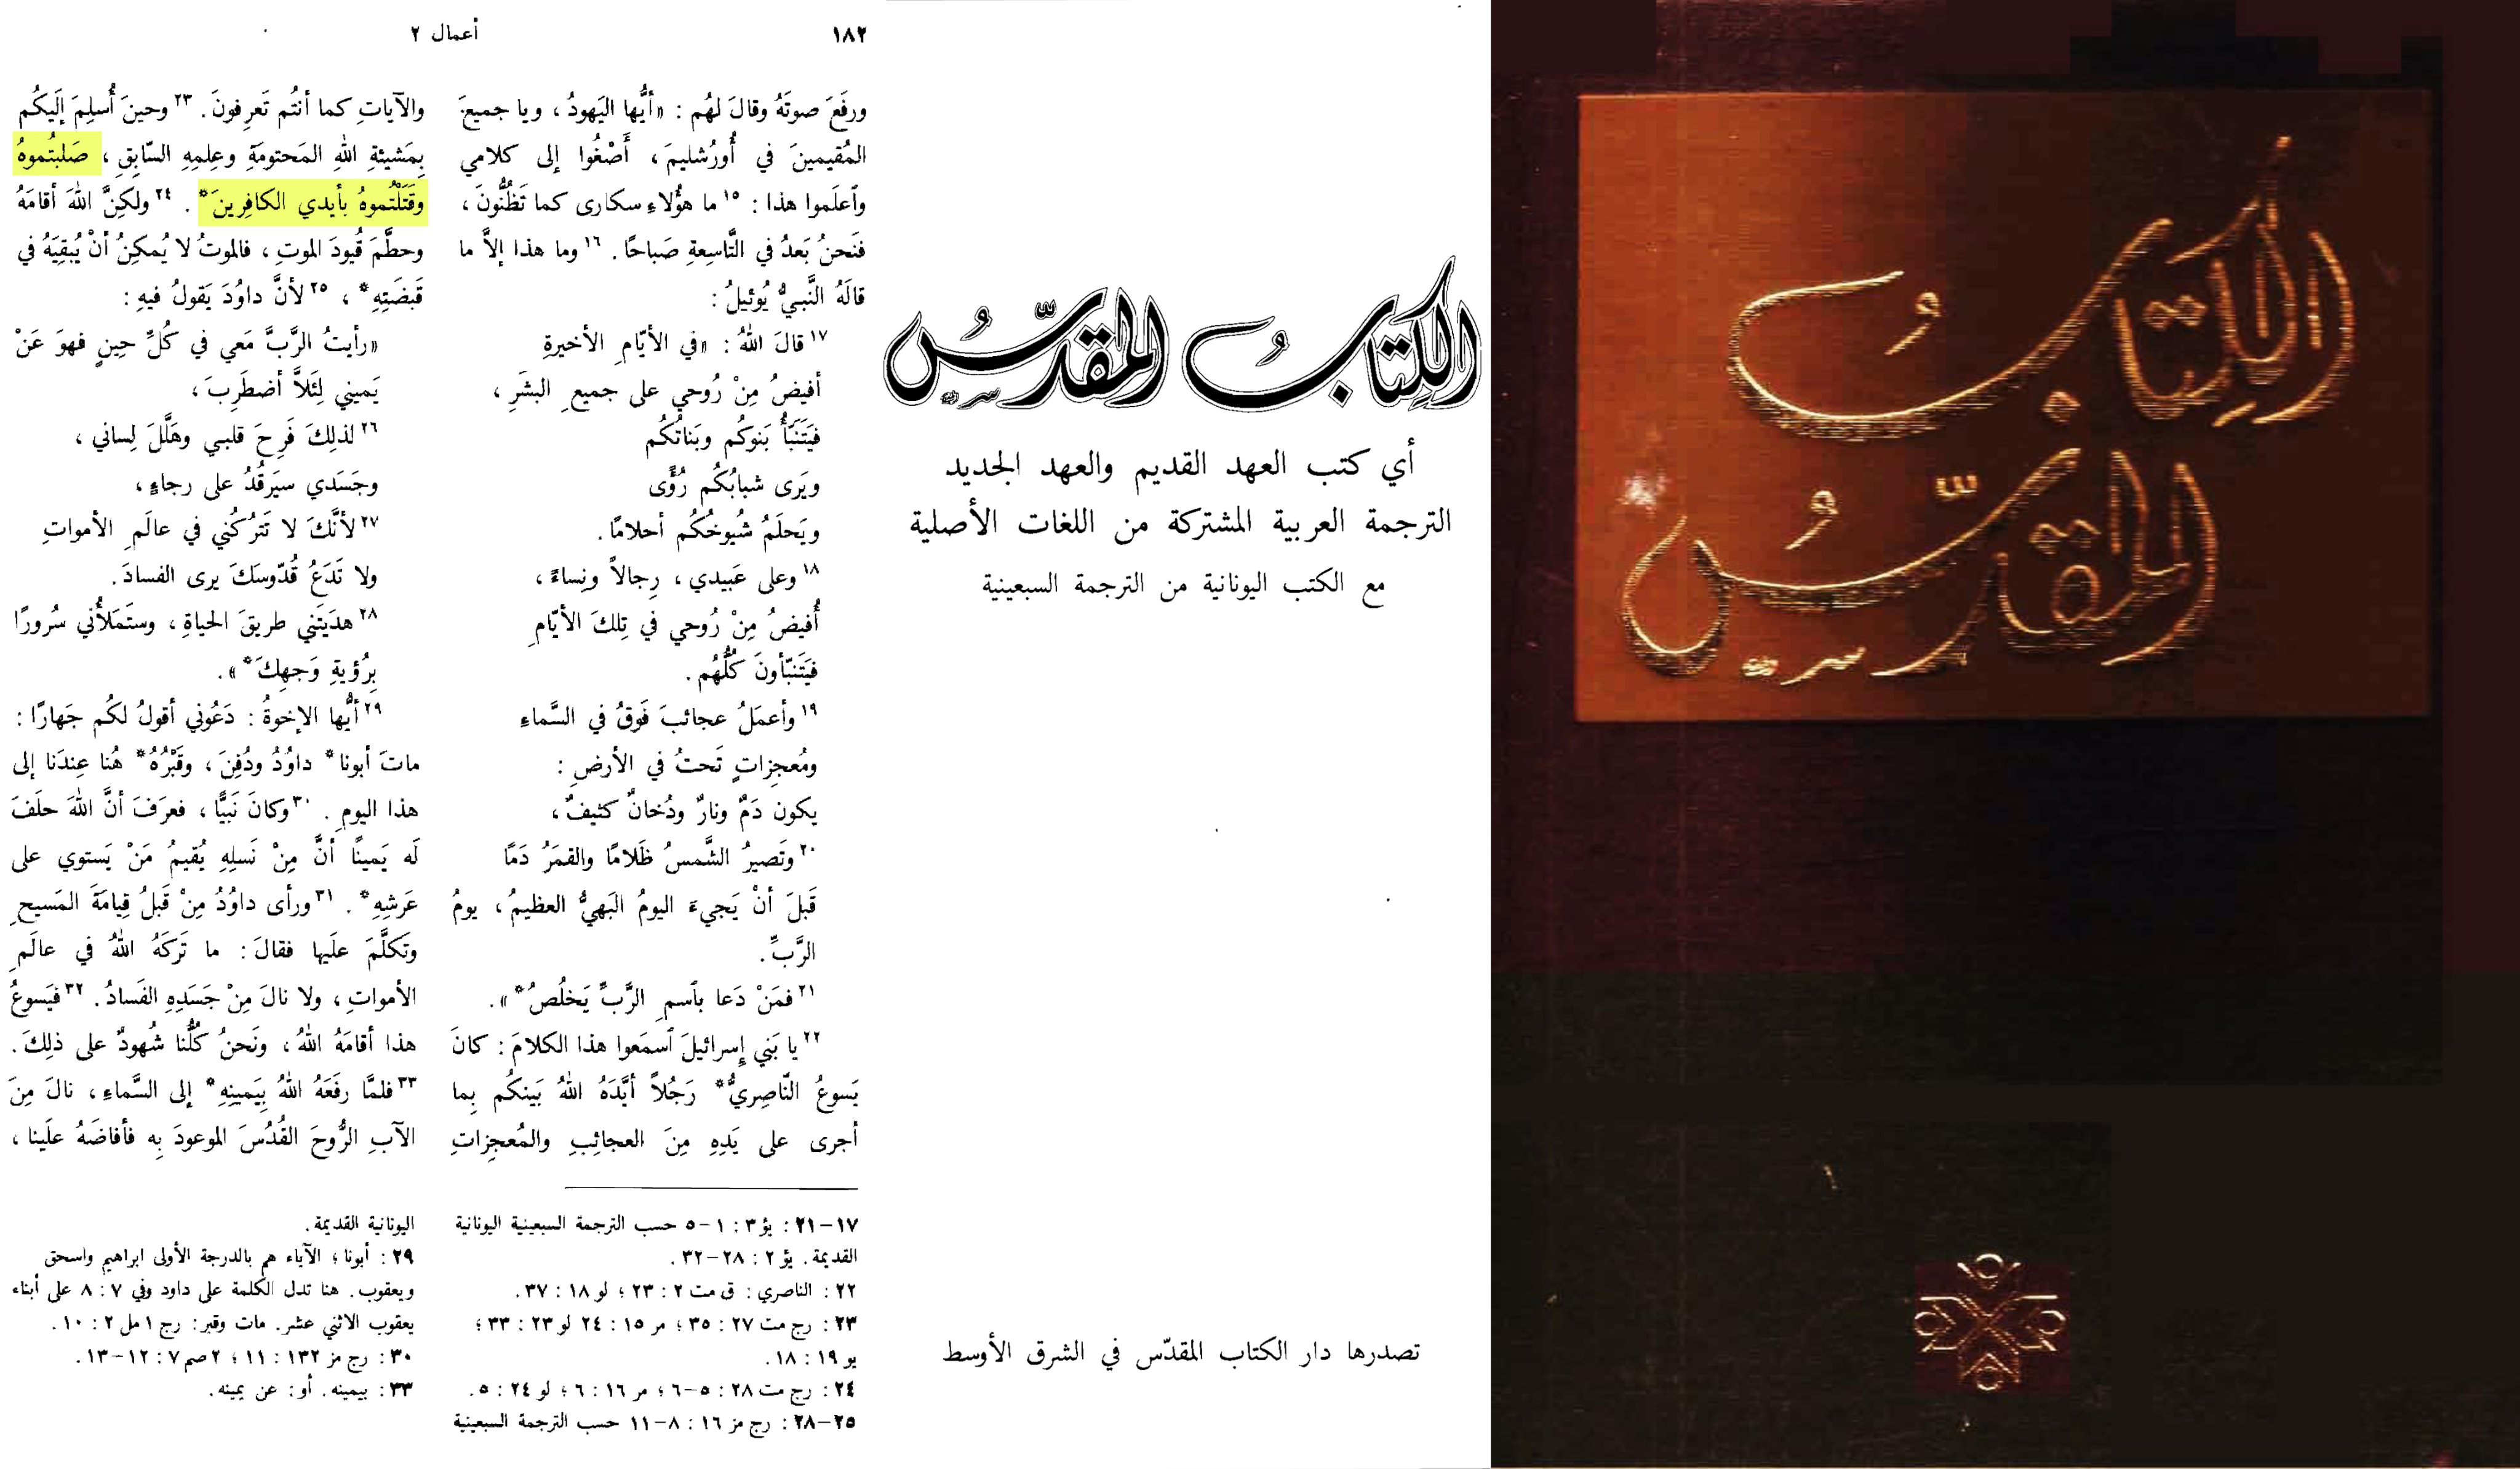 ١٨٢
أعمال ٢
ورفَعَ صوتَهُ وقالَ لهُم : «أيُّها اليَهودُ ، ويا جميعَ
المُقيمينَ في أُورُشليمَ ، أَصْغُوا إلى كلامي
وٱعلَموا هذا : ١٥ ما هؤُلاءِ سكارى كما تَظُنُّونَ ،
فنَحنُ بَعدُ في التَّاسِعةِ صَباحًا . ١٦ وما هذا إلاَّ ما
قالَهُ النَّبـيُّ يُوئيلُ :
١٧ قالَ اللهُ : «في الأيّامِ الأخيرةِ
أفيضُ مِنْ رُوحي على جميعِ البشَرِ ،
فيَتَنَبَّأُ بَنوكُم وبَناتُكُم
ويَرى شبابُكُم رُؤًى
ويَحلَمُ شُيوخُكُم أحلامًا .
١٨ وعلى عَبيدي ، رِجالاً ونِساءً ،
أُفيضُ مِنْ رُوحي في تِلكَ الأيّامِ
فيَتَنبّأونَ كُلُّهُم .
١٩ وأعمَلُ عجائبَ فَوقُ في السَّماءِ
ومُعجِزاتٍ تَحتُ في الأرضِ :
يكون دَمٌ ونارٌ ودُخانٌ كثيفٌ ،
٢٠ وتَصيرُ الشَّمسُ ظَلامًا والقمَرُ دَمًا
قَبلَ أنْ يَجيءَ اليومُ البَهيُّ العظيمُ ، يومُ
الرَّبِّ .
٢١ فمَنْ دَعا بٱسمِ الرَّبِّ يَخلُصُ* » .
٢٢ يا بَني إسرائيلَ ٱسمَعوا هذا الكلامَ : كانَ
يَسوعُ النّاصِريُّ* رَجُلاً أيَّدَهُ اللهُ بَينكُم بِما
أجرى على يَدِهِ مِنَ العجائِبِ والمُعجِزاتِ
والآياتِ كما أنتُم تَعرِفونَ . ٢٣ وحينَ أُسلِمَ إلَيكُم
بِمَشيئةِ اللهِ المَحتومَةِ وعِلمِهِ السّابِقِ ، صَلبتُموهُ
وقَتَلْتُموهُ بأيدي الكافِرينَ* . ٢٤ ولكِنَّ اللهَ أقامَهُ
وحطَّمَ قُيودَ الموتِ ، فالموتُ لا يُمكِنُ أنْ يُبقِيَهُ في
قَبضَتِهِ* ، ٢٥ لأنَّ داوُدَ يَقولُ فيهِ :
«رأيتُ الرَّبَّ مَعي في كُلِّ حِينٍ فهوَ عَنْ
يَميني لِئَلاَّ أضطَرِبَ ،
٢٦ لذلِكَ فَرِحَ قلبـي وهَلَّلَ لِساني ،
وجَسَدي سيَرقُدُ على رجاءٍ ،
٢٧ لأنَّكَ لا تَترُكُني في عالَمِ الأمواتِ
ولا تَدَعُ قُدّوسَكَ يرى الفسادَ .
٢٨ هدَيتَني طريقَ الحياةِ ، وستَملأُني سُرورًا
بِرُؤيةِ وَجهِكَ* » .
٢٩ أيُّها الإخوةُ : دَعُوني أقولُ لكُم جَهارًا :
ماتَ أبونا* داوُدُ ودُفِنَ ، وقَبْرُهُ* هُنا عِندَنا إلى
هذا اليومِ . ٣٠ وكانَ نَبيًّا ، فعرَفَ أنَّ اللهَ حلَفَ
لَه يَمينًا أنَّ مِنْ نَسلِهِ يُقيمُ مَنْ يَستوي على
عَرشِهِ* . ٣١ ورأى داوُدُ مِنْ قَبلُ قِيامَةَ المَسيحِ
وتَكلَّمَ علَيها فقالَ : ما تَركَهُ اللهُ في عالَمِ
الأمواتِ ، ولا نالَ مِنْ جَسَدِهِ الفَسادُ . ٣٢ فيَسوعُ
هذا أقامَهُ اللهُ ، ونَحنُ كُلُّنا شُهودٌ على ذلِكَ .
٣٣ فلمَّا رفَعَهُ اللهُ بيَمينِهِ* إلى السَّماءِ ، نالَ مِنَ
الآبِ الرُّوحَ القُدُسَ الموعودَ بِه فأفاضَهُ علَينا ،
١٧–٢١ : يؤ ٣ : ١–٥ حسب الترجمة السبعينية اليونانية
القديمة . يؤ ٢ : ٢٨–٣٢ .
٢٢ : الناصري : ق مت ٢ : ٢٣ ؛ لو ١٨ : ٣٧ .
٢٣ : رج مت ٢٧ : ٣٥ ؛ مر ١٥ : ٢٤ لو ٢٣ : ٣٣ ؛
يو ١٩ : ١٨ .
٢٤ : رج مت ٢٨ : ٥–٦ ؛ مر ١٦ : ٦ ؛ لو ٢٤ : ٥ .
٢٥–٢٨ : رج مز ١٦ : ٨–١١ حسب الترجمة السبعينية
اليونانية القديمة .
٢٩ : أبونا ؛ الآباء هم بالدرجة الأولى ابراهيم واسحق
ويعقوب . هنا تدل الكلمة على داود وفي ٧ : ٨ على أبناء
يعقوب الاثني عشر . مات وقبر : رج ١ مل ٢ : ١٠ .
٣٠ : رج مز ١٣٢ : ١١ ؛ ٢ صم ٧ : ١٢–١٣ .
٣٣ : بيمينه . أو : عن يمينه .
الكِتابُ المقدّسُ
أي كتب العهد القديم والعهد الجديد
الترجمة العربية المشتركة من اللغات الأصلية
مع الكتب اليونانية من الترجمة السبعينية
تصدرها دار الكتاب المقدّس في الشرق الأوسط
الكِتابُ
المقدّسُ